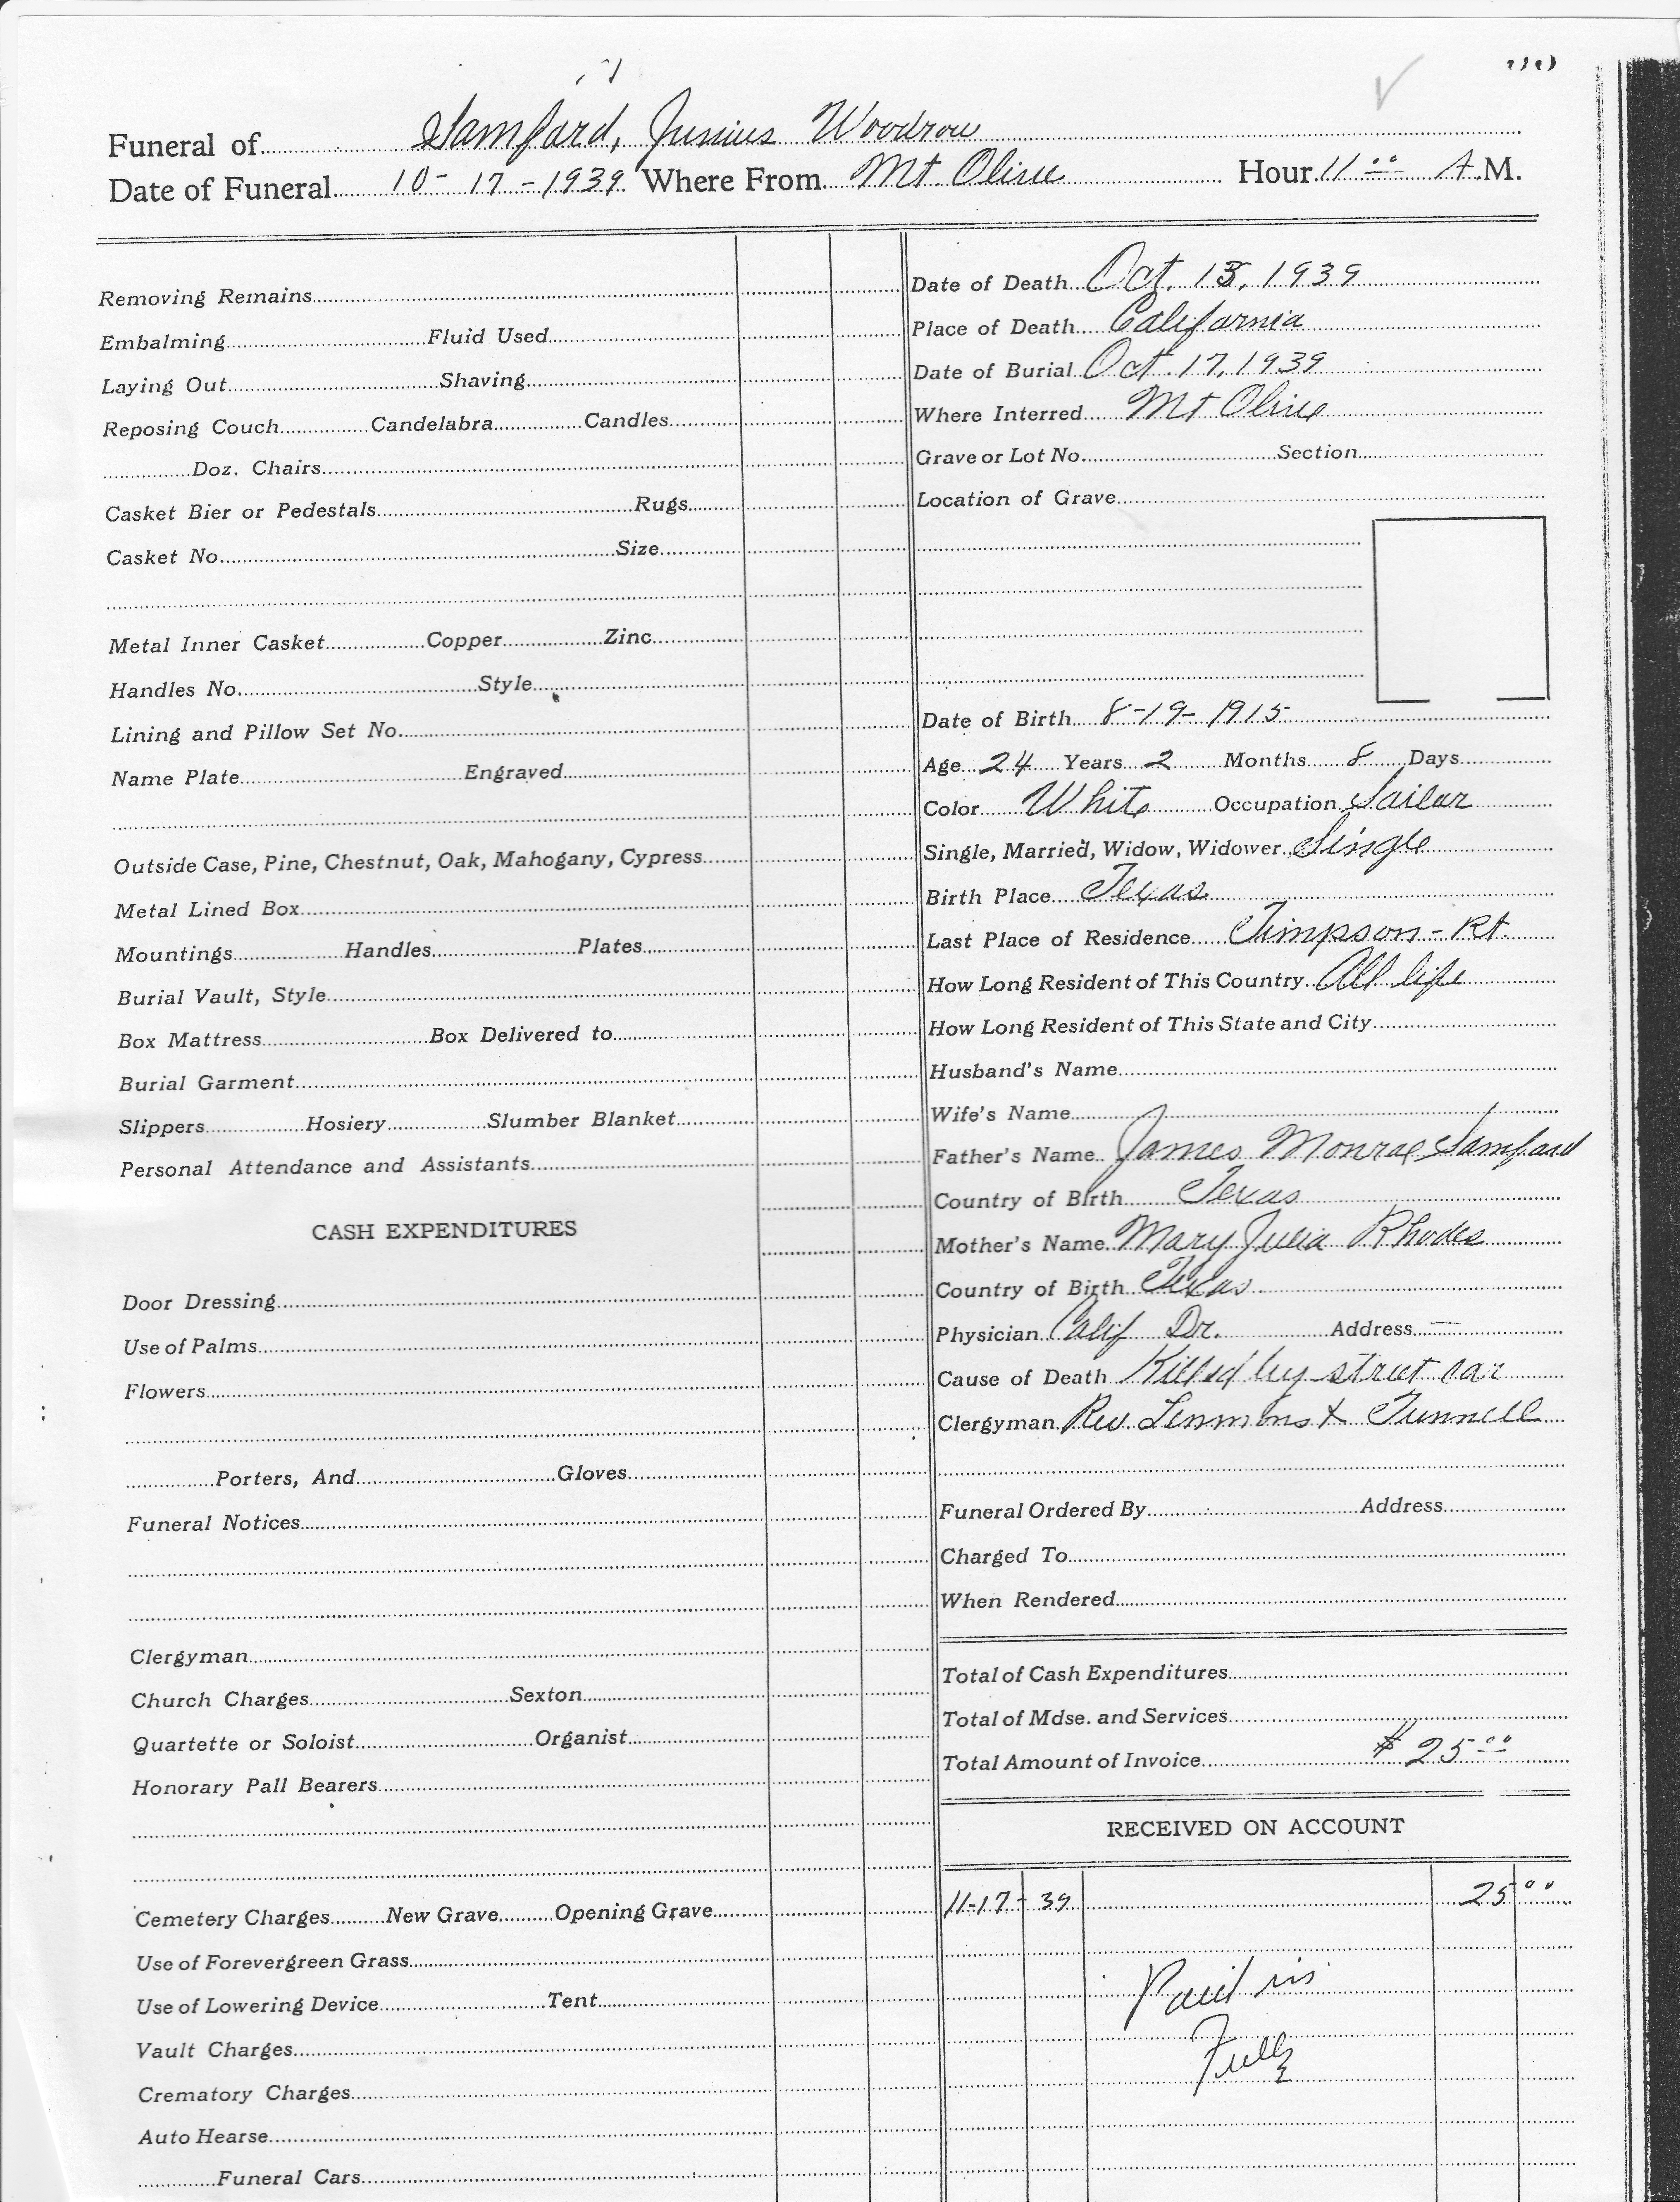 Funeral of Samford, Junius Woodrow
Date of Funeral 10-17-1939 Where From Mt. Olive Hour 11:00 A.M.
Removing Remains
Embalming Fluid Used
Laying Out Shaving
Reposing Couch Candelabra Candles
Doz. Chairs
Casket Bier or Pedestals Rugs
Casket No. Size
Metal Inner Casket Copper Zinc
Handles No. Style
Lining and Pillow Set No.
Name Plate Engraved
Outside Case, Pine, Chestnut, Oak, Mahogany, Cypress
Metal Lined Box
Mountings Handles Plates
Burial Vault, Style
Box Mattress Box Delivered to
Burial Garment
Slippers Hosiery Slumber Blanket
Personal Attendance and Assistants
CASH EXPENDITURES
Door Dressing
Use of Palms
Flowers
Porters, And Gloves
Funeral Notices
Clergyman
Church Charges Sexton
Quartette or Soloist Organist
Honorary Pall Bearers
Cemetery Charges New Grave Opening Grave
Use of Forevergreen Grass
Use of Lowering Device Tent
Vault Charges
Crematory Charges
Auto Hearse
Funeral Cars
Date of Death Oct. 13, 1939
Place of Death California
Date of Burial Oct. 17, 1939
Where Interred Mt Olive
Grave or Lot No. Section
Location of Grave
Date of Birth 8-19-1915
Age 24 Years 2 Months 8 Days
Color White Occupation Sailor
Single, Married, Widow, Widower Single
Birth Place Texas
Last Place of Residence Timpson - Rt.
How Long Resident of This Country All life
How Long Resident of This State and City
Husband's Name
Wife's Name
Father's Name James Monroe Samford
Country of Birth Texas
Mother's Name Mary Julia Rhodes
Country of Birth Texas
Physician Calif Dr. Address —
Cause of Death Killed by street car
Clergyman Rev. Lemmons & Tunnell
Funeral Ordered By Address
Charged To
When Rendered
Total of Cash Expenditures
Total of Mdse. and Services
Total Amount of Invoice $25.00
RECEIVED ON ACCOUNT
11-17-39 25 00
Paid in
Full